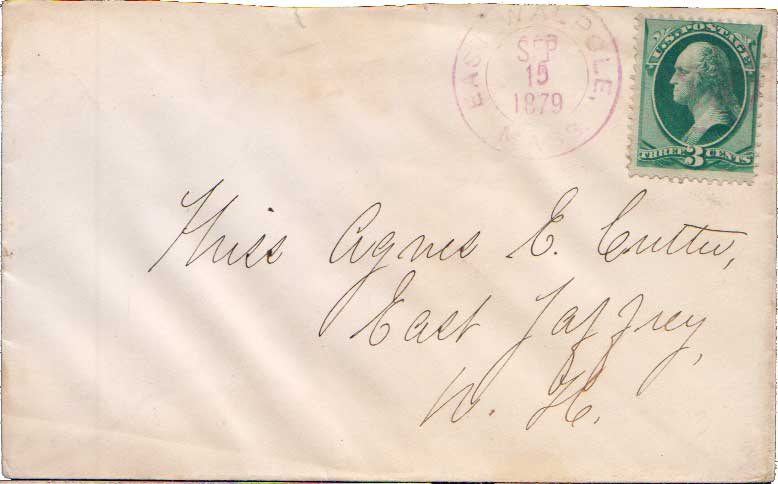 EAST WALPOLE,
SEP
15
1879
MASS.
U.S. POSTAGE
THREE 3 CENTS
Miss Agnes E. Cutter,
East Jaffrey,
N. H.